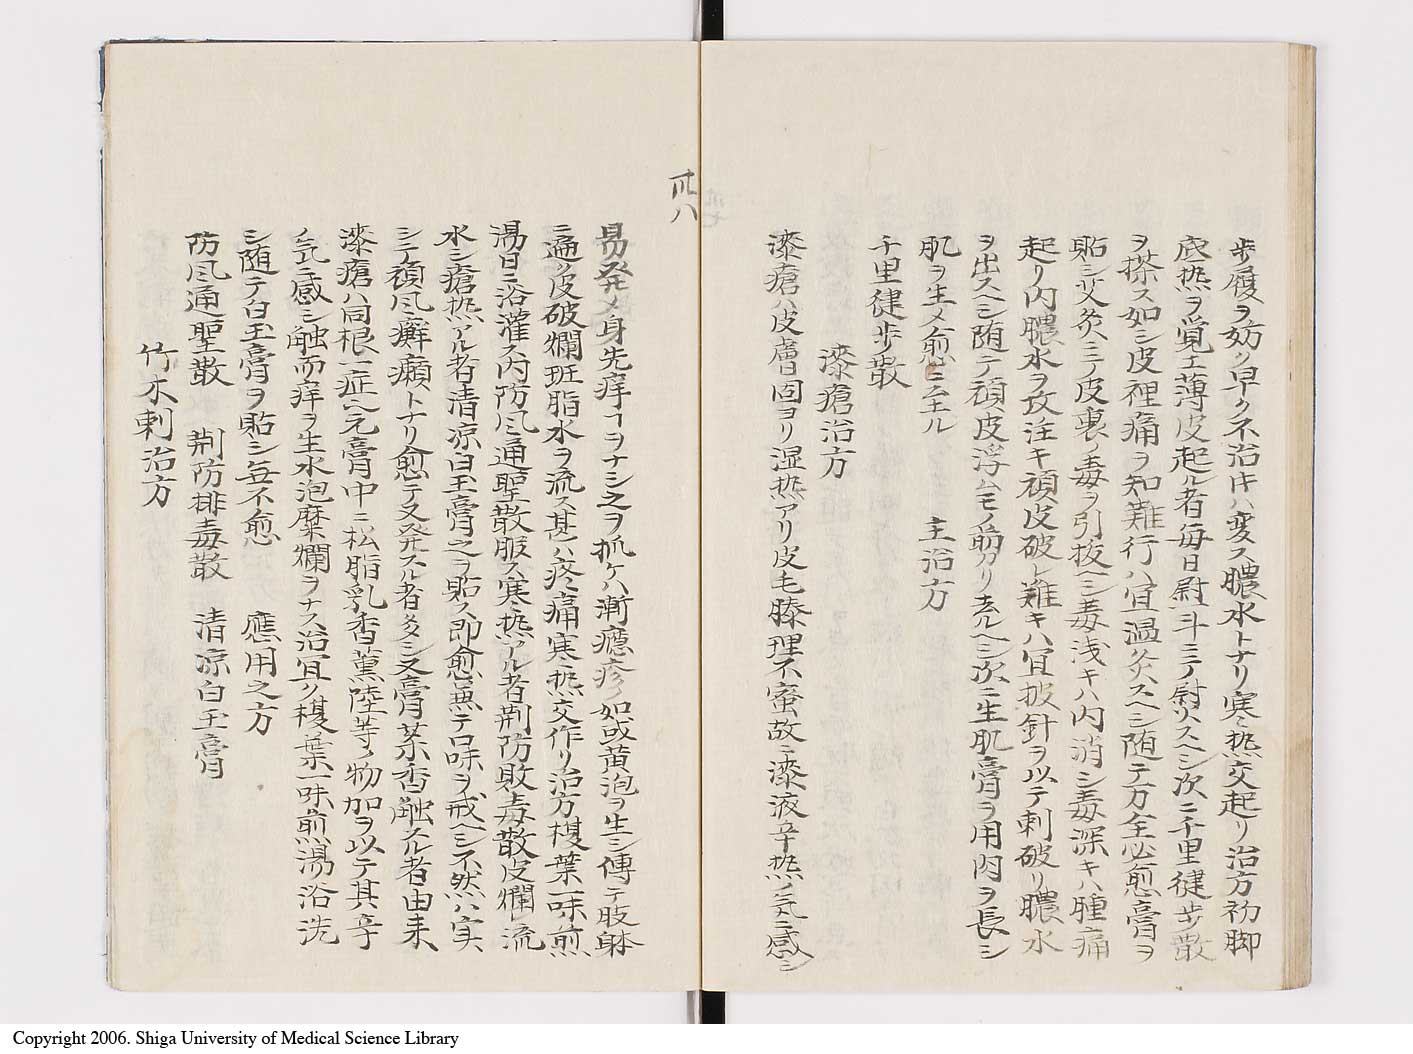 歩履ヲ妨ク早ク不治ドキハ変ス膿水トナリ寒熱交起リ治方初脚
底熱ヲ覚エ薄皮起ル者毎日熨斗ニテ熨スヘシ次ニ千里健歩散
ヲ搽ス如シ皮裡痛ヲ知難行ハ宜温灸スヘシ随テ万全必愈膏ヲ
貼シ艾灸ニテ皮裏ノ毒ヲ引抜ヘシ毒浅キハ内消シ毒深キハ腫痛
起リ内膿水ヲ攻注キ頑皮破レ難キハ宜披針ヲ以テ刺破リ膿水
ヲ出スヘシ随テ頑皮浮ムモノ剪リ去ルヘシ次ニ生肌膏ヲ用肉ヲ長シ
肌ヲ生メ愈ニ至ル 主治方
千里健歩散
漆瘡治方
漆瘡ハ皮膚固ヨリ湿熱アリ皮毛腠理不蜜故ニ漆液辛熱ノ気ニ感シ
卌八
易発メ身先痒ヿヲナシ之ヲ抓ケハ漸癮疹ノ如或黄泡ヲ生シ傳テ肢躰
ニ遍ク皮破爛斑脂水ヲ流ス甚ハ疼痛寒熱交作リ治方榎葉一味煎
湯日ニ浴灌ス内防風通聖散服ス寒熱アル者荊防敗毒散皮爛レ流
水シ瘡熱アル者清涼白玉膏之ヲ貼ス即愈無テ口味ヲ戒ヘシ不然ハ実
シテ頑風癬癩トナリ愈テ又発スル者多シ又膏薬香触スル者由来
漆瘡ハ同根一症ヘ元膏中ニ松脂乳香薫陸等ノ物加ヲ以テ其辛
ノ気ニ感シ触而痒ヲ生水泡糜爛ヲナス治宜ク榎葉一味煎湯浴洗
シ随テ白玉膏ヲ貼シ毎不愈 應用之方
防風通聖散 荊防排毒散 清涼白玉膏
竹木刺治方
Copyright 2006. Shiga University of Medical Science Library